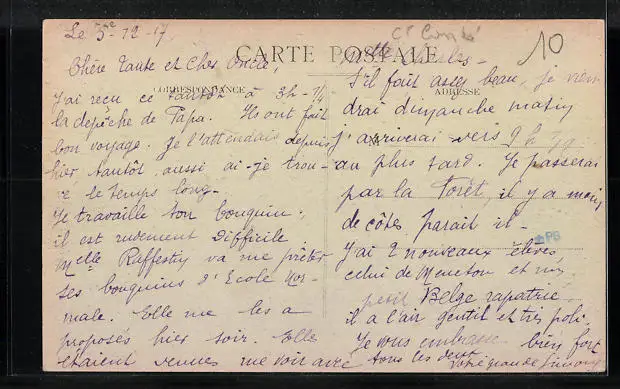 Le 5-12-17
CARTE POSTALE
CORRESPONDANCE
ADRESSE
10
Chère Tante et Cher Oncle,
J'ai reçu ce tantôt à 3h-1/4
la depêche de Papa. Ils ont fait
bon voyage. Je l'attendais depuis
hier tantôt aussi ai-je trou-
vé le temps long-
Je travaille ton bouquin;
il est rudement difficile
Melle Riffestin va me prêter
ses bouquins d'Ecole Nor-
male. Elle me les a
proposés hier soir. Elle
étaient venues me voir avec
Charles-
S'il fait assez beau, je vien
drai dimanche matin
J'arriverai vers 9h
au plus tard. Je passerai
par la forêt, il y a moins
de côtes parait il-
J'ai 2 nouveaux élèves,
celui de Meneton et un
petit Belge rapatrié.
il a l'air gentil et très poli.
Je vous embrasse bien fort
tous les deux
Votre grande